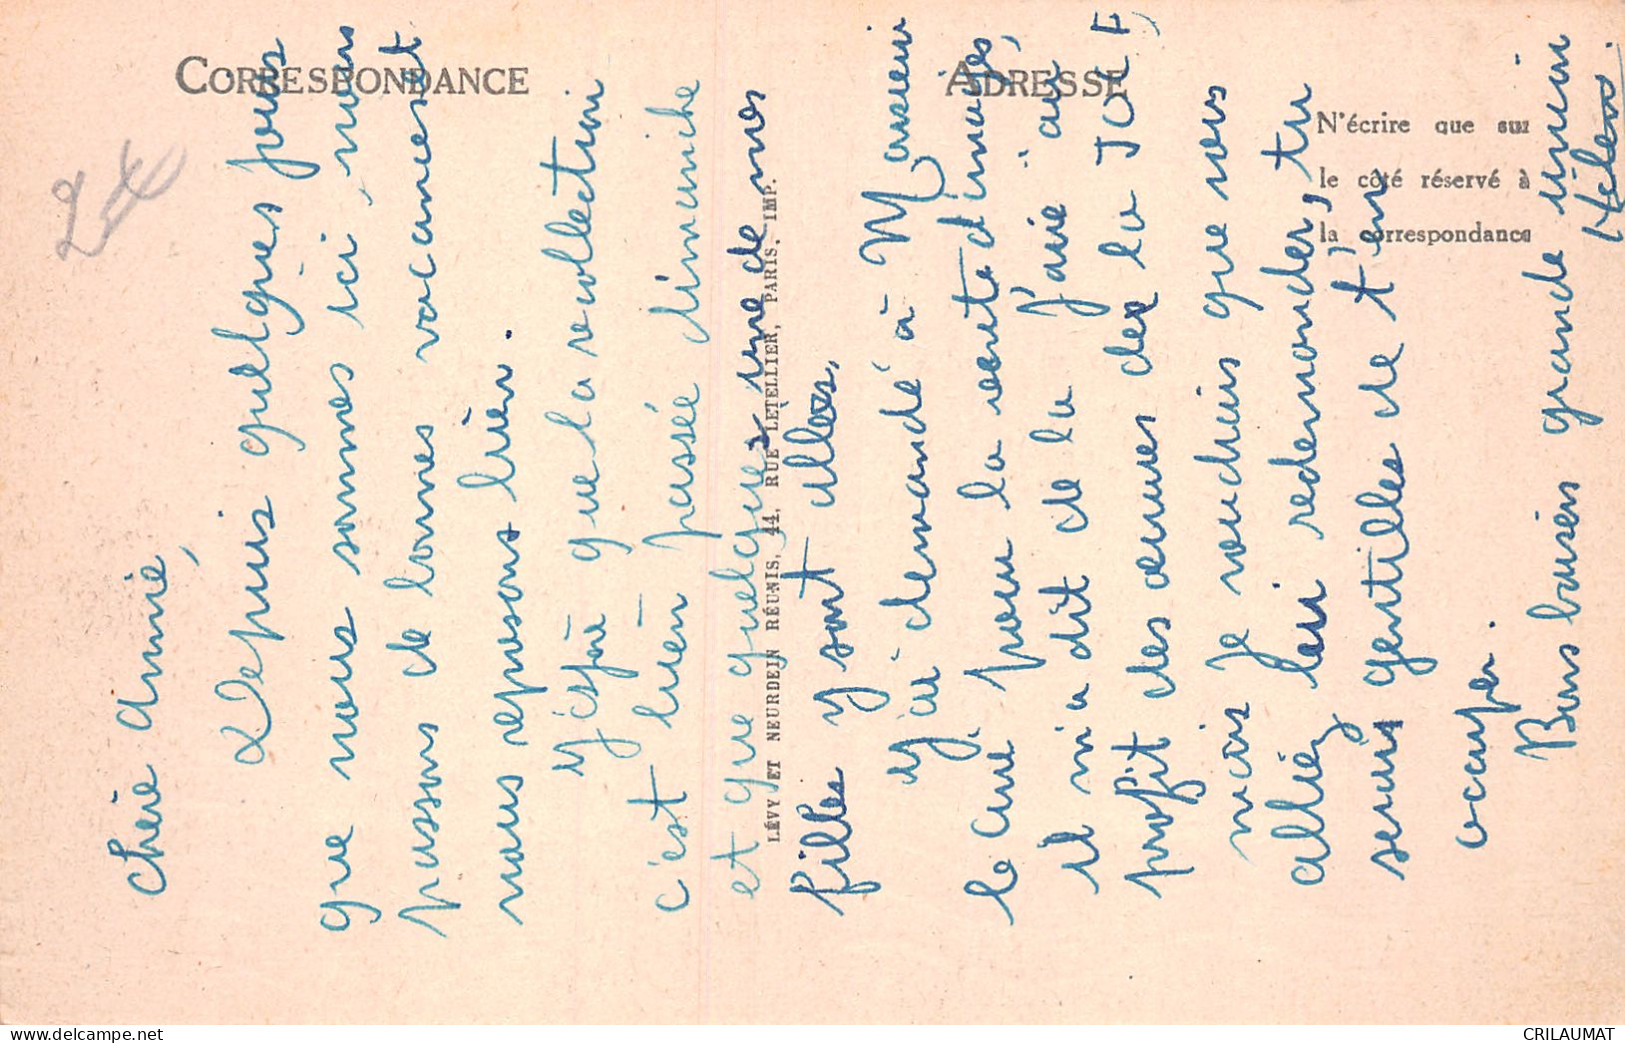 CORRESPONDANCE
ADRESSE
N'écrire que sur
le côté réservé à
la correspondance
LÉVY ET NEURDEIN RÉUNIS, 44, RUE LETELLIER, PARIS. IMP.
2€
Chère Annie,
Depuis quelques jours
que nous sommes ici, nous
passons de bonnes vacances et
nous reposons bien.
J'espère que la recollection
c'est bien passée dimanche
et que quelques une de nos
filles y sont allées.
J'ai demandé à Monsieur
le Curé pour la vente d'images,
il m'a dit de la faire au
profit des œuvres de la JOCF,
mais je voudrais que vous
alliez lui redemander, tu
serais gentilles de t'en
occuper.
Bons baisers grande union
Hélène
www.delcampe.net
CRILAUMAT